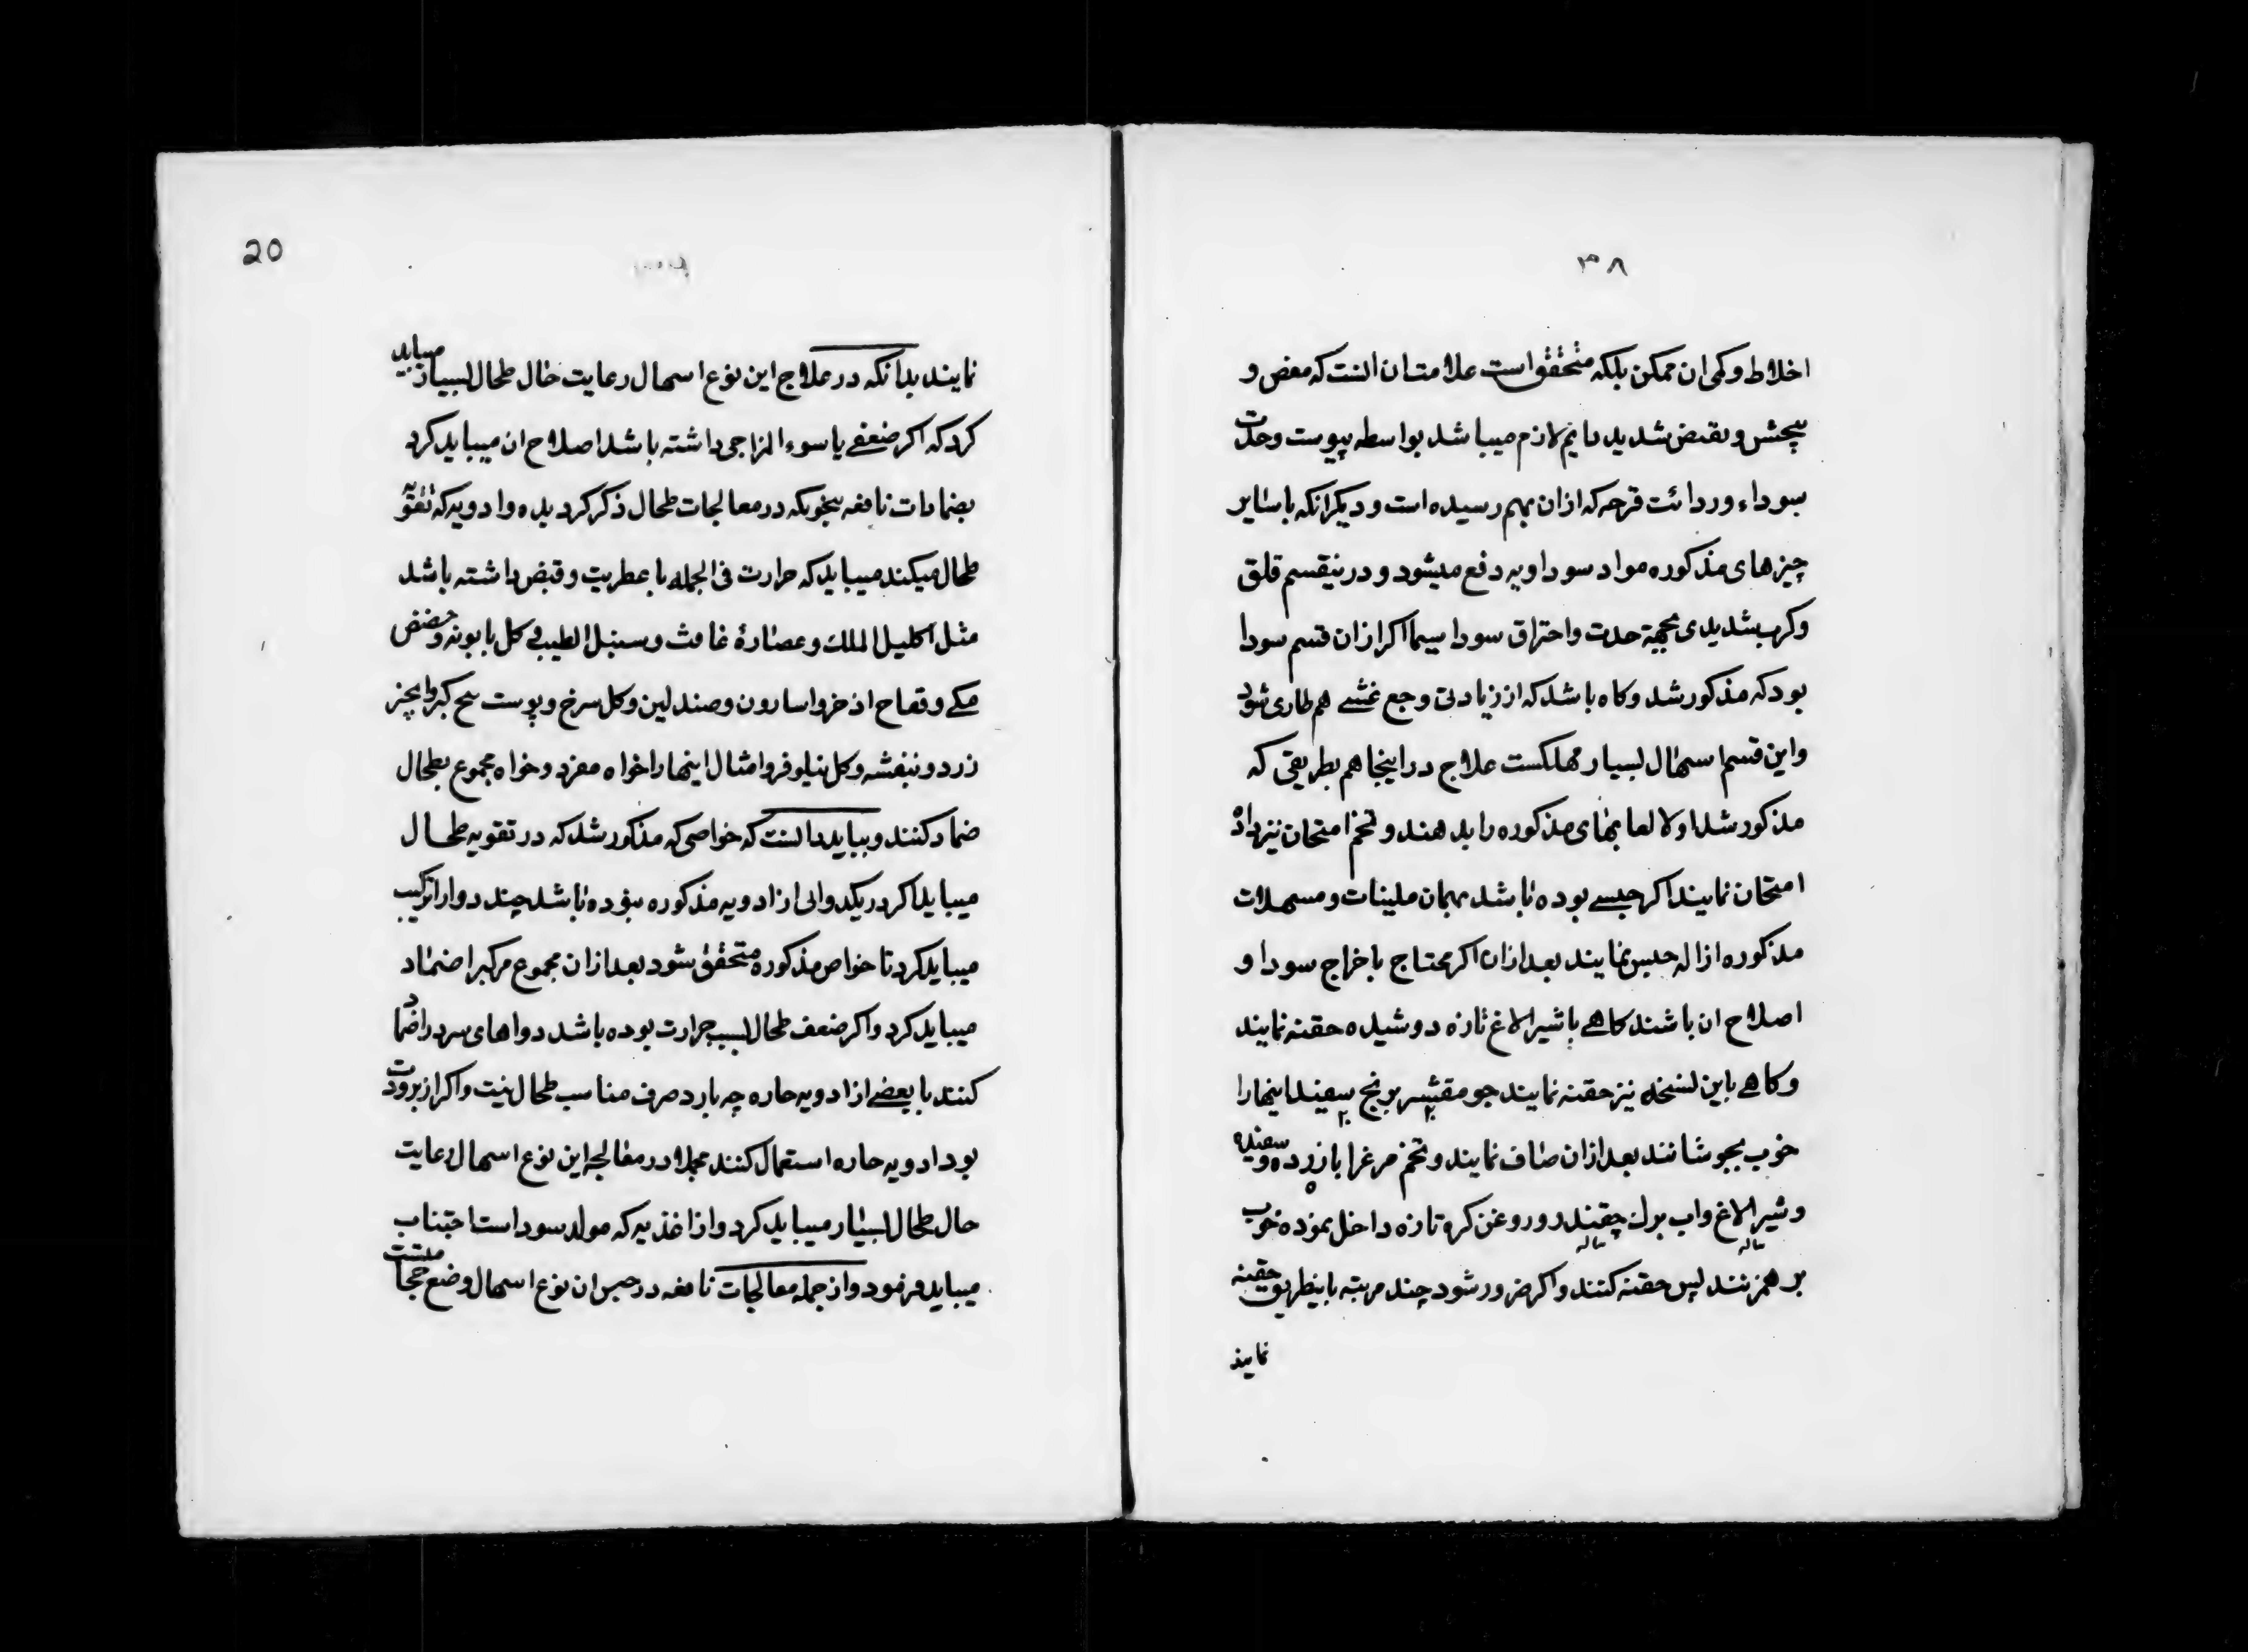 ۳۸
اخلاط و کمی ان ممکن بلکه متحقق است علامتان انست که مغص و
پیچش و تقبض شدید دایم لازم میباشد بواسطه یبوست و حدت
سوداء و ردائت قرحه که ازان بهم رسیده است و دیکر انکه با سایر
چیزهای مذکوره مواد سوداویه دفع میشود و درینقسم قلق
و کرب شدیدی بجهة حدت و احتراق سودا سیما اکر ازان قسم سودا
بود که مذکور شد و کاه باشد که از زیادتی وجع غشے هم طاری شود
و این قسم اسهال بسیار مهلکست علاج در اینجا هم بطریقی که
مذکور شد اولا لعابهای مذکوره را بدهند و تخم امتحان نیز داده
امتحان نمایند اکر حبسے بوده باشد بهمان ملینات و مسهلات
مذکوره ازاله حبس نمایند بعد ازان اکر محتاج باخراج سودا و
اصلاح ان باشند کاهے با شیر الاغ تازه دوشیده حقنه نمایند
و کاهے باین نسخه نیز حقنه نمایند جو مقشر برنج سفید اینها را
خوب بجوشانند بعد ازان صاف نمایند و تخم مرغ را با زرده و سفیده
و شیر الاغ و اب برك چقندر و روغن کره تازه داخل نموده خوب
بر هم زنند پس حقنه کنند و اکر ضرور شود چند مرتبه باینطریق حقنه
نمایند
20
نمایند بدانکه در علاج این نوع اسهال رعایت حال طحال بسیار میباید
کرد که اکر ضعفے یا سوء المزاجی داشته باشد اصلاح ان میباید کرد
بضمادات نافعه بنحویکه در معالجات طحال ذکر کردیده و ادویه که تقویة
طحال میکند میباید که حرارت فی الجمله با عطریت و قبض داشته باشد
مثل اکلیل الملك و عصارۀ غافث و سنبل الطیب و کل بابونه و حضض
مکے و فقاح اذخر و اسارون و صندلین و کل سرخ و پوست بیخ کبر و انجیر
زرد و بنفشه و کل نیلوفر و امثال اینها را خواه مفرد و خواه مجموع بطحال
ضماد کنند و بباید دانست که خواصی که مذکور شد که در تقویه طحال
میباید اکر در یکدوائی از ادویه مذکوره نبوده باشد چند دوا را ترکیب
میباید کرد تا خواص مذکوره متحقق شود بعد ازان مجموع مرکب را ضماد
میباید کرد و اکر ضعف طحال بسبب حرارت بوده باشد دواهای سرد را ضماد
کنند با بعضے از ادویه حاره چه بارد صرف مناسب طحال نیست و اکر از برودت
بود ادویه حاره استعمال کنند مجملا در معالجه این نوع اسهال رعایت
حال طحال بسیار میباید کرد و از اغذیه که مولد سوداست اجتناب
میباید فرمود و از جمله معالجات نافعه در حبس ان نوع اسهال وضع حجامتست